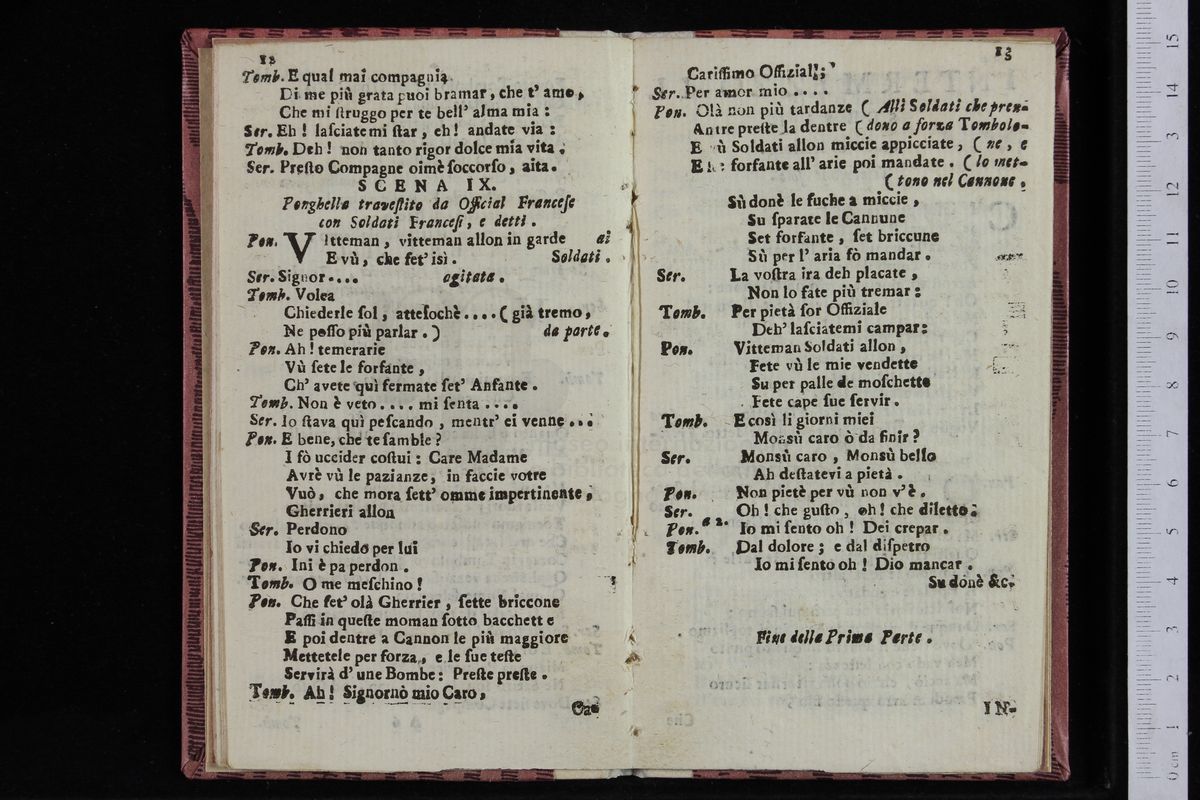 12
Tomb. E qual mai compagnia
Di me più grata puoi bramar, che t' amo,
Che mi ſtruggo per te bell' alma mia:
Ser. Eh! laſciatemi ſtar, eh! andate via:
Tomb. Deh! non tanto rigor dolce mia vita.
Ser. Preſto Compagne oimè ſoccorſo, aita.
SCENA IX.
Ponghella traveſtito da Official Franceſe
con Soldati Franceſi, e detti.
Pon. VItteman, vitteman allon in garde ai
E vù, che fet' isì. Soldati.
Ser. Signor.... agitata.
Tomb. Volea
Chiederle ſol, atteſochè....( già tremo,
Ne poſſo più parlar.) da parte.
Pon. Ah! temerarie
Vù ſete le forfante,
Ch' avete quì fermate ſet' Anfante.
Tomb. Non è veto.... mi ſenta....
Ser. Io ſtava quì peſcando, mentr' ei venne...
Pon. E bene, che te ſamble?
I fò uccider coſtui: Care Madame
Avrè vù le pazianze, in faccie votre
Vuò, che mora ſett' omme impertinente,
Gherrieri allon
Ser. Perdono
Io vi chiedo per lui
Pon. Ini è pa perdon.
Tomb. O me meſchino!
Pon. Che fet' olà Gherrier, ſette briccone
Paſſi in queſte moman ſotto bacchett e
E poi dentre a Cannon le più maggiore
Mettetele per forza, e le ſue teſte
Servirà d' une Bombe: Preſte preſte.
Tomb. Ah! Signornò mio Caro,
Ca-
13
Cariſſimo Offizial
Ser. Per amor mio....
Pon. Olà non più tardanze ( Alli Soldati che pren-
Antre preſte la dentre ( dono a forza Tombolo-
E vù Soldati allon miccie appicciate, ( ne, e
forfante all' arie poi mandate. ( lo met-
( tono nel Cannone.
Sù donè le fuche a miccie,
Su ſparate le Cannune
Set forfante, ſet briccune
Sù per l' aria fò mandar.
Ser. La voſtra ira deh placate,
Non lo fate più tremar:
Tomb. Per pietà ſor Offiziale
Deh' laſciatemi campar:
Pon. Vitteman Soldati allon,
Fete vù le mie vendette
Su per palle de moſchette
Fete cape ſue ſervir.
Tomb. E così li giorni miei
Monsù caro ò da finir?
Ser. Monsù caro, Monsù bello
Ah deſtatevi a pietà.
Pon. Non pietè per vù non v'è.
Ser. Oh! che guſto, oh! che diletto:
Pon. a 2. Io mi ſento oh! Dei crepar.
Tomb. Dal dolore; e dal diſpetro
Io mi ſento oh! Dio mancar.
Su donè &c.
Fine della Prima Parte.
IN-
0 cm 1 2 3 4 5 6 7 8 9 10 11 12 13 14 15